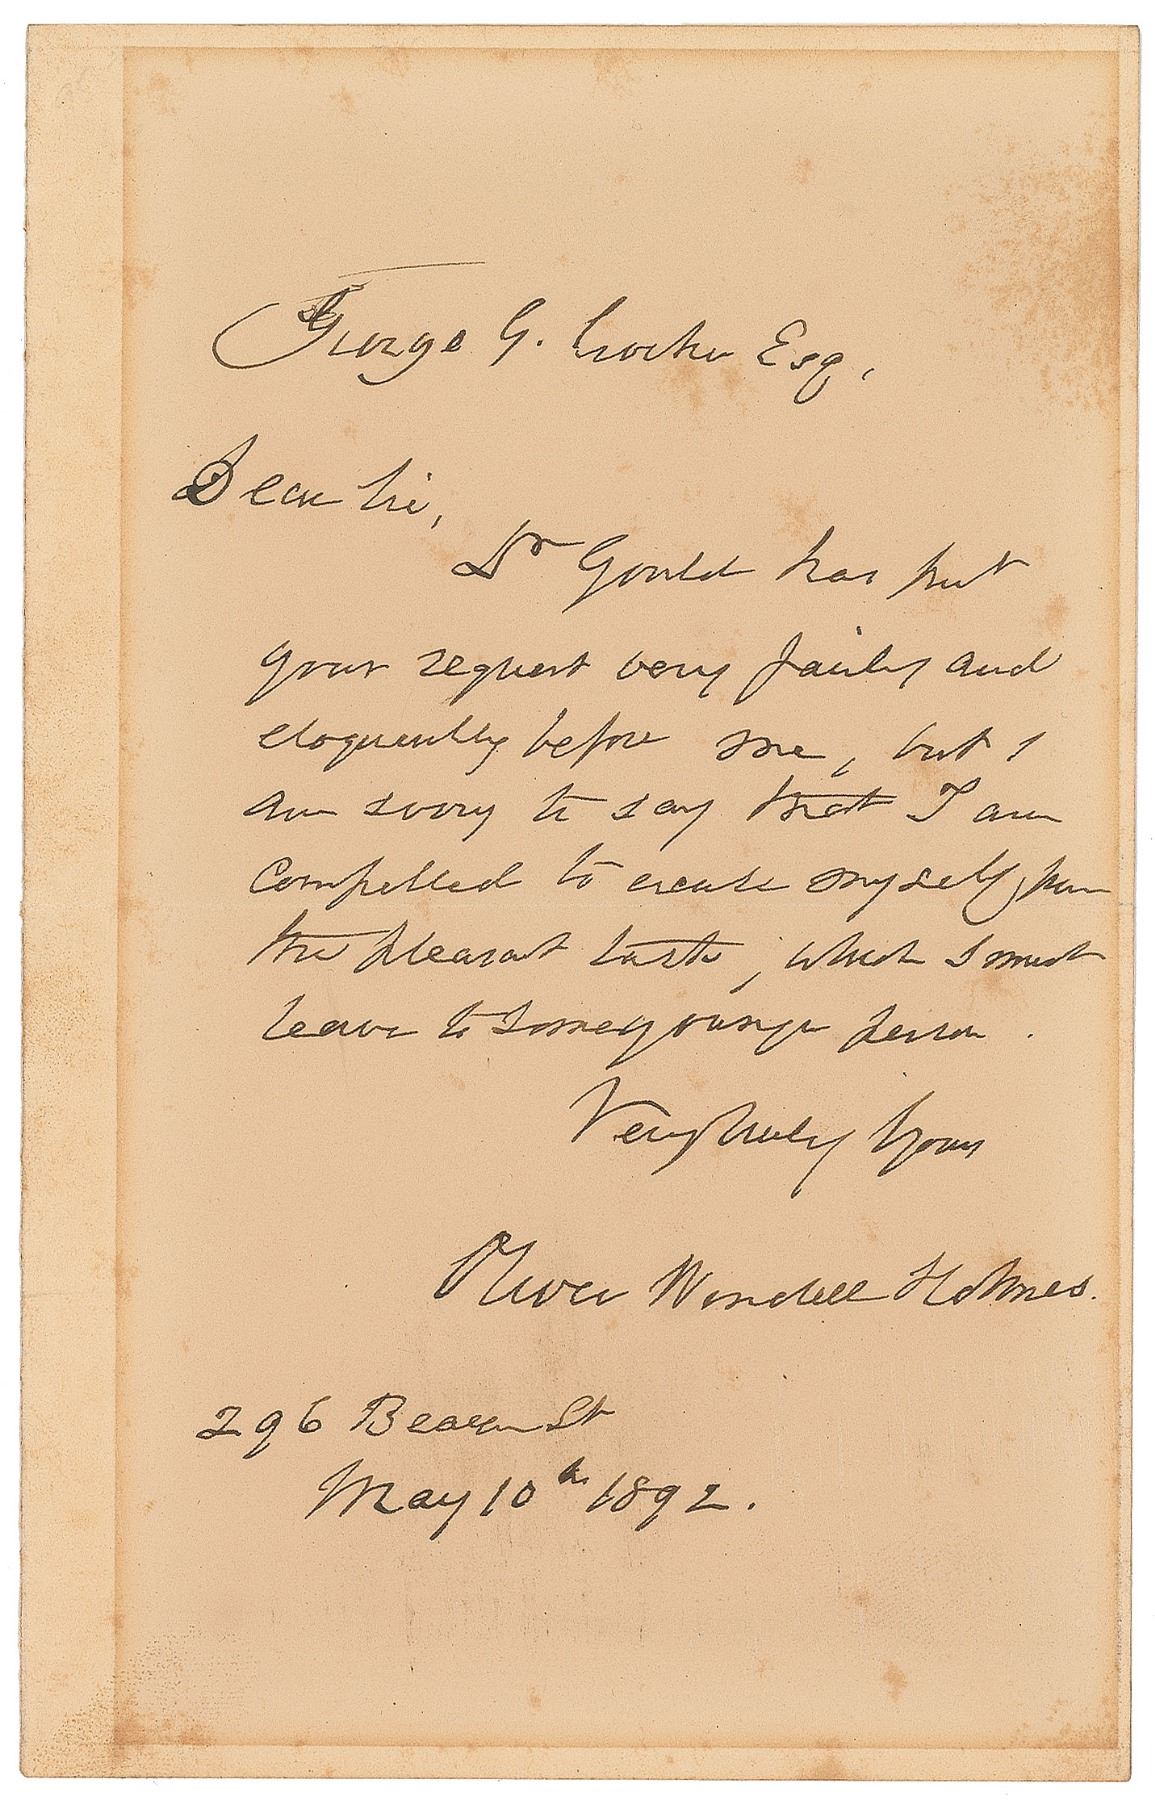 George G. Crocker Esq,
Dear Sir,
Dr Gould has put
your request very fairly and
eloquently before me, but I
am sorry to say that I am
compelled to excuse myself from
the pleasant task, which I must
leave to some younger person.
Very truly Yours
Oliver Wendell Holmes.
296 Beacon St
May 10th 1892.